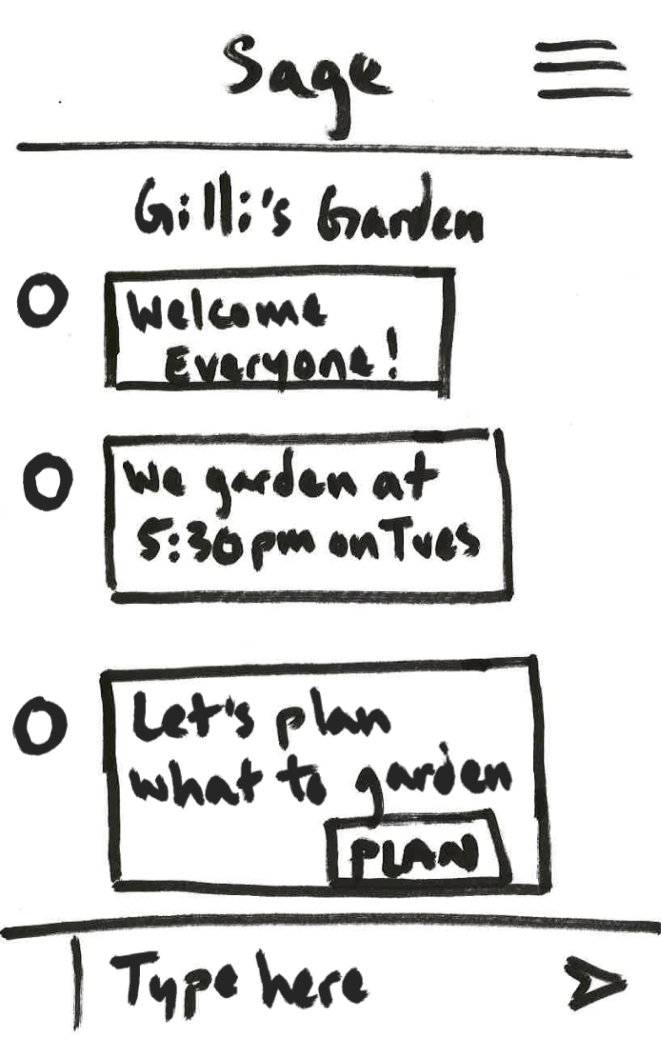 Sage
Gilli's Garden
Welcome
Everyone!
We garden at
5:30pm on Tues
Let's plan
what to garden
PLAN
Type here